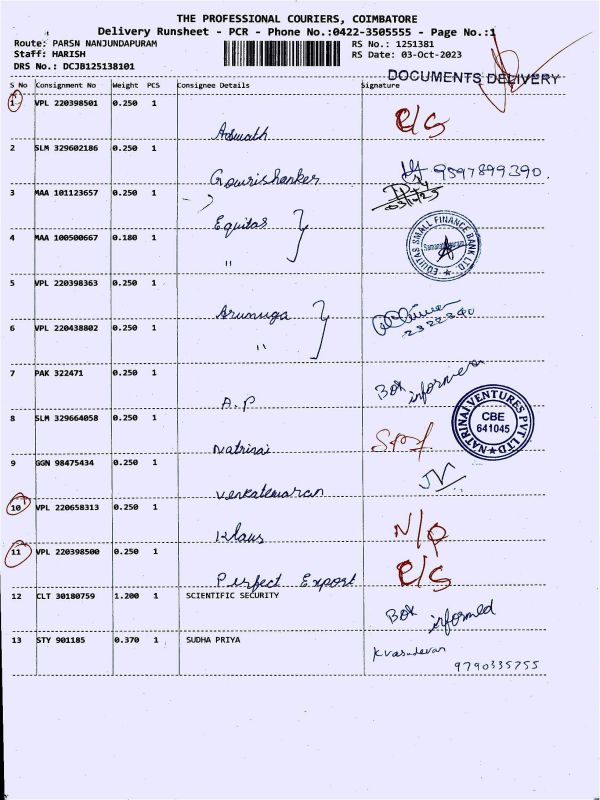 THE PROFESSIONAL COURIERS, COIMBATORE
Delivery Runsheet - PCR - Phone No.:0422-3505555 - Page No.:1
Route: PARSN NANJUNDAPURAM RS No.: 1251381
Staff: HARISH RS Date: 03-Oct-2023
DRS No.: DCJB125138101
DOCUMENTS DELIVERY
S No Consignment No Weight PCS Consignee Details Signature
1 VPL 220398501 0.250 1
Aswath C/S
2 SLM 329602186 0.250 1
Gourishanker 9597899390.
3 MAA 101123657 0.250 1
Equitas
EQUITAS SMALL FINANCE BANK LTD.
4 MAA 100500667 0.180 1
"
5 VPL 220398363 0.250 1
Arumuga
6 VPL 220438802 0.250 1
"
7 PAK 322471 0.250 1
A.P Box informed
8 SLM 329664058 0.250 1
Natrinai
NATRINAI VENTURES PVT LTD
CBE
641045
9 GGN 98475434 0.250 1
Venkateswaran JV
10 VPL 220658313 0.250 1
Klaus N/P
11 VPL 220398500 0.250 1
Perfect Export C/S
12 CLT 30180759 1.200 1 SCIENTIFIC SECURITY
Box informed
13 STY 901185 0.370 1 SUDHA PRIYA
K Vasudevan
9790335755